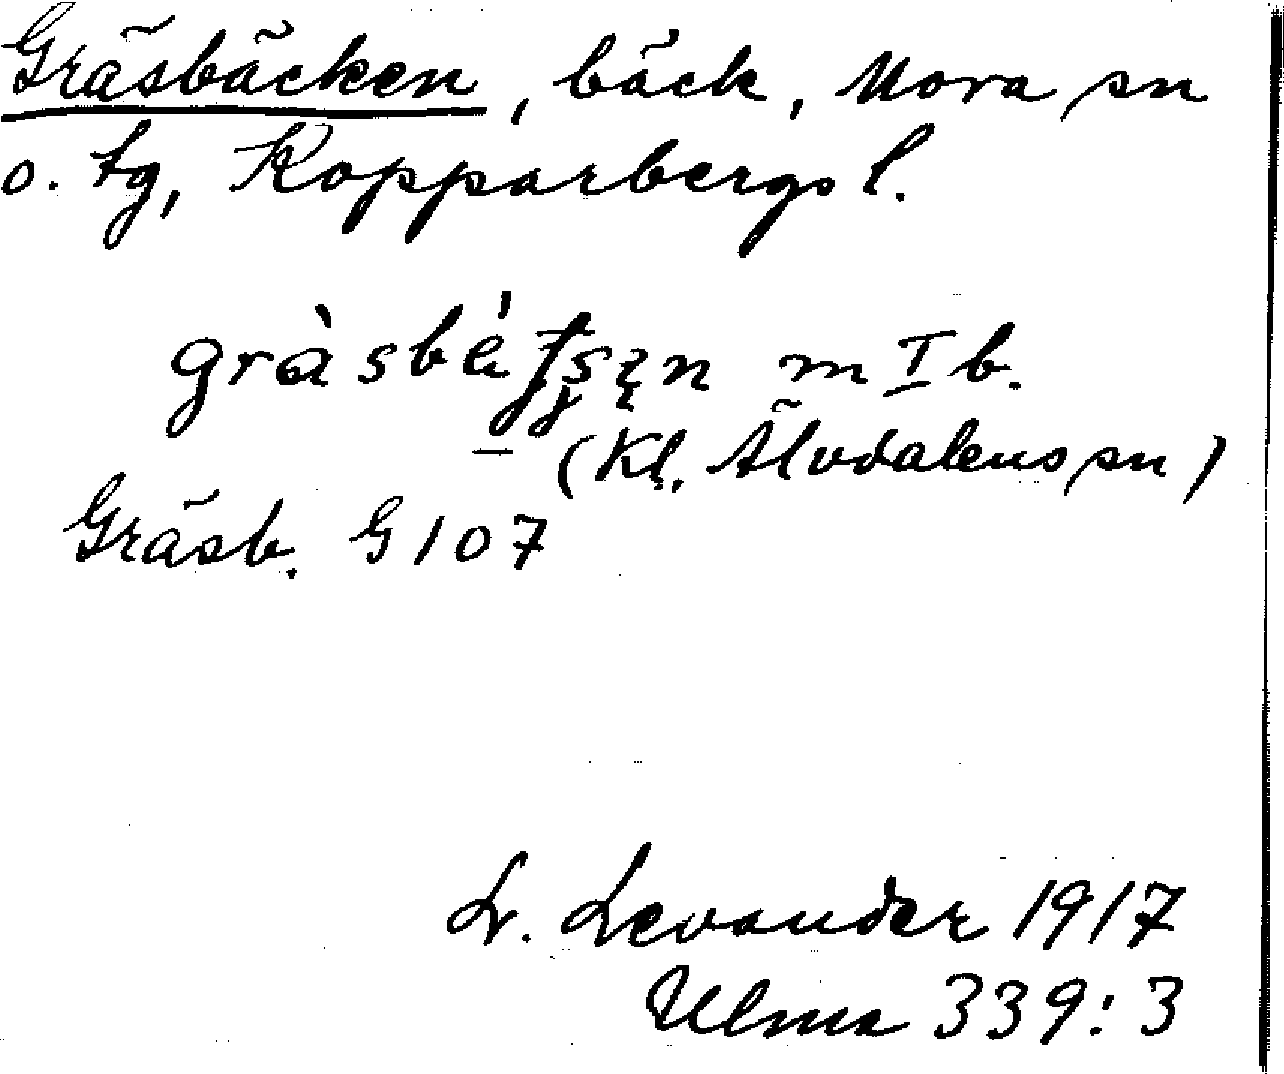 Gräsbäcken, bäck, Mora sn
o. tg, Kopparbergs l.
m I b.
(Kl. Älvdalens sn)
Gräsb. G 107
L. Levander 1917
Ulma 339:3